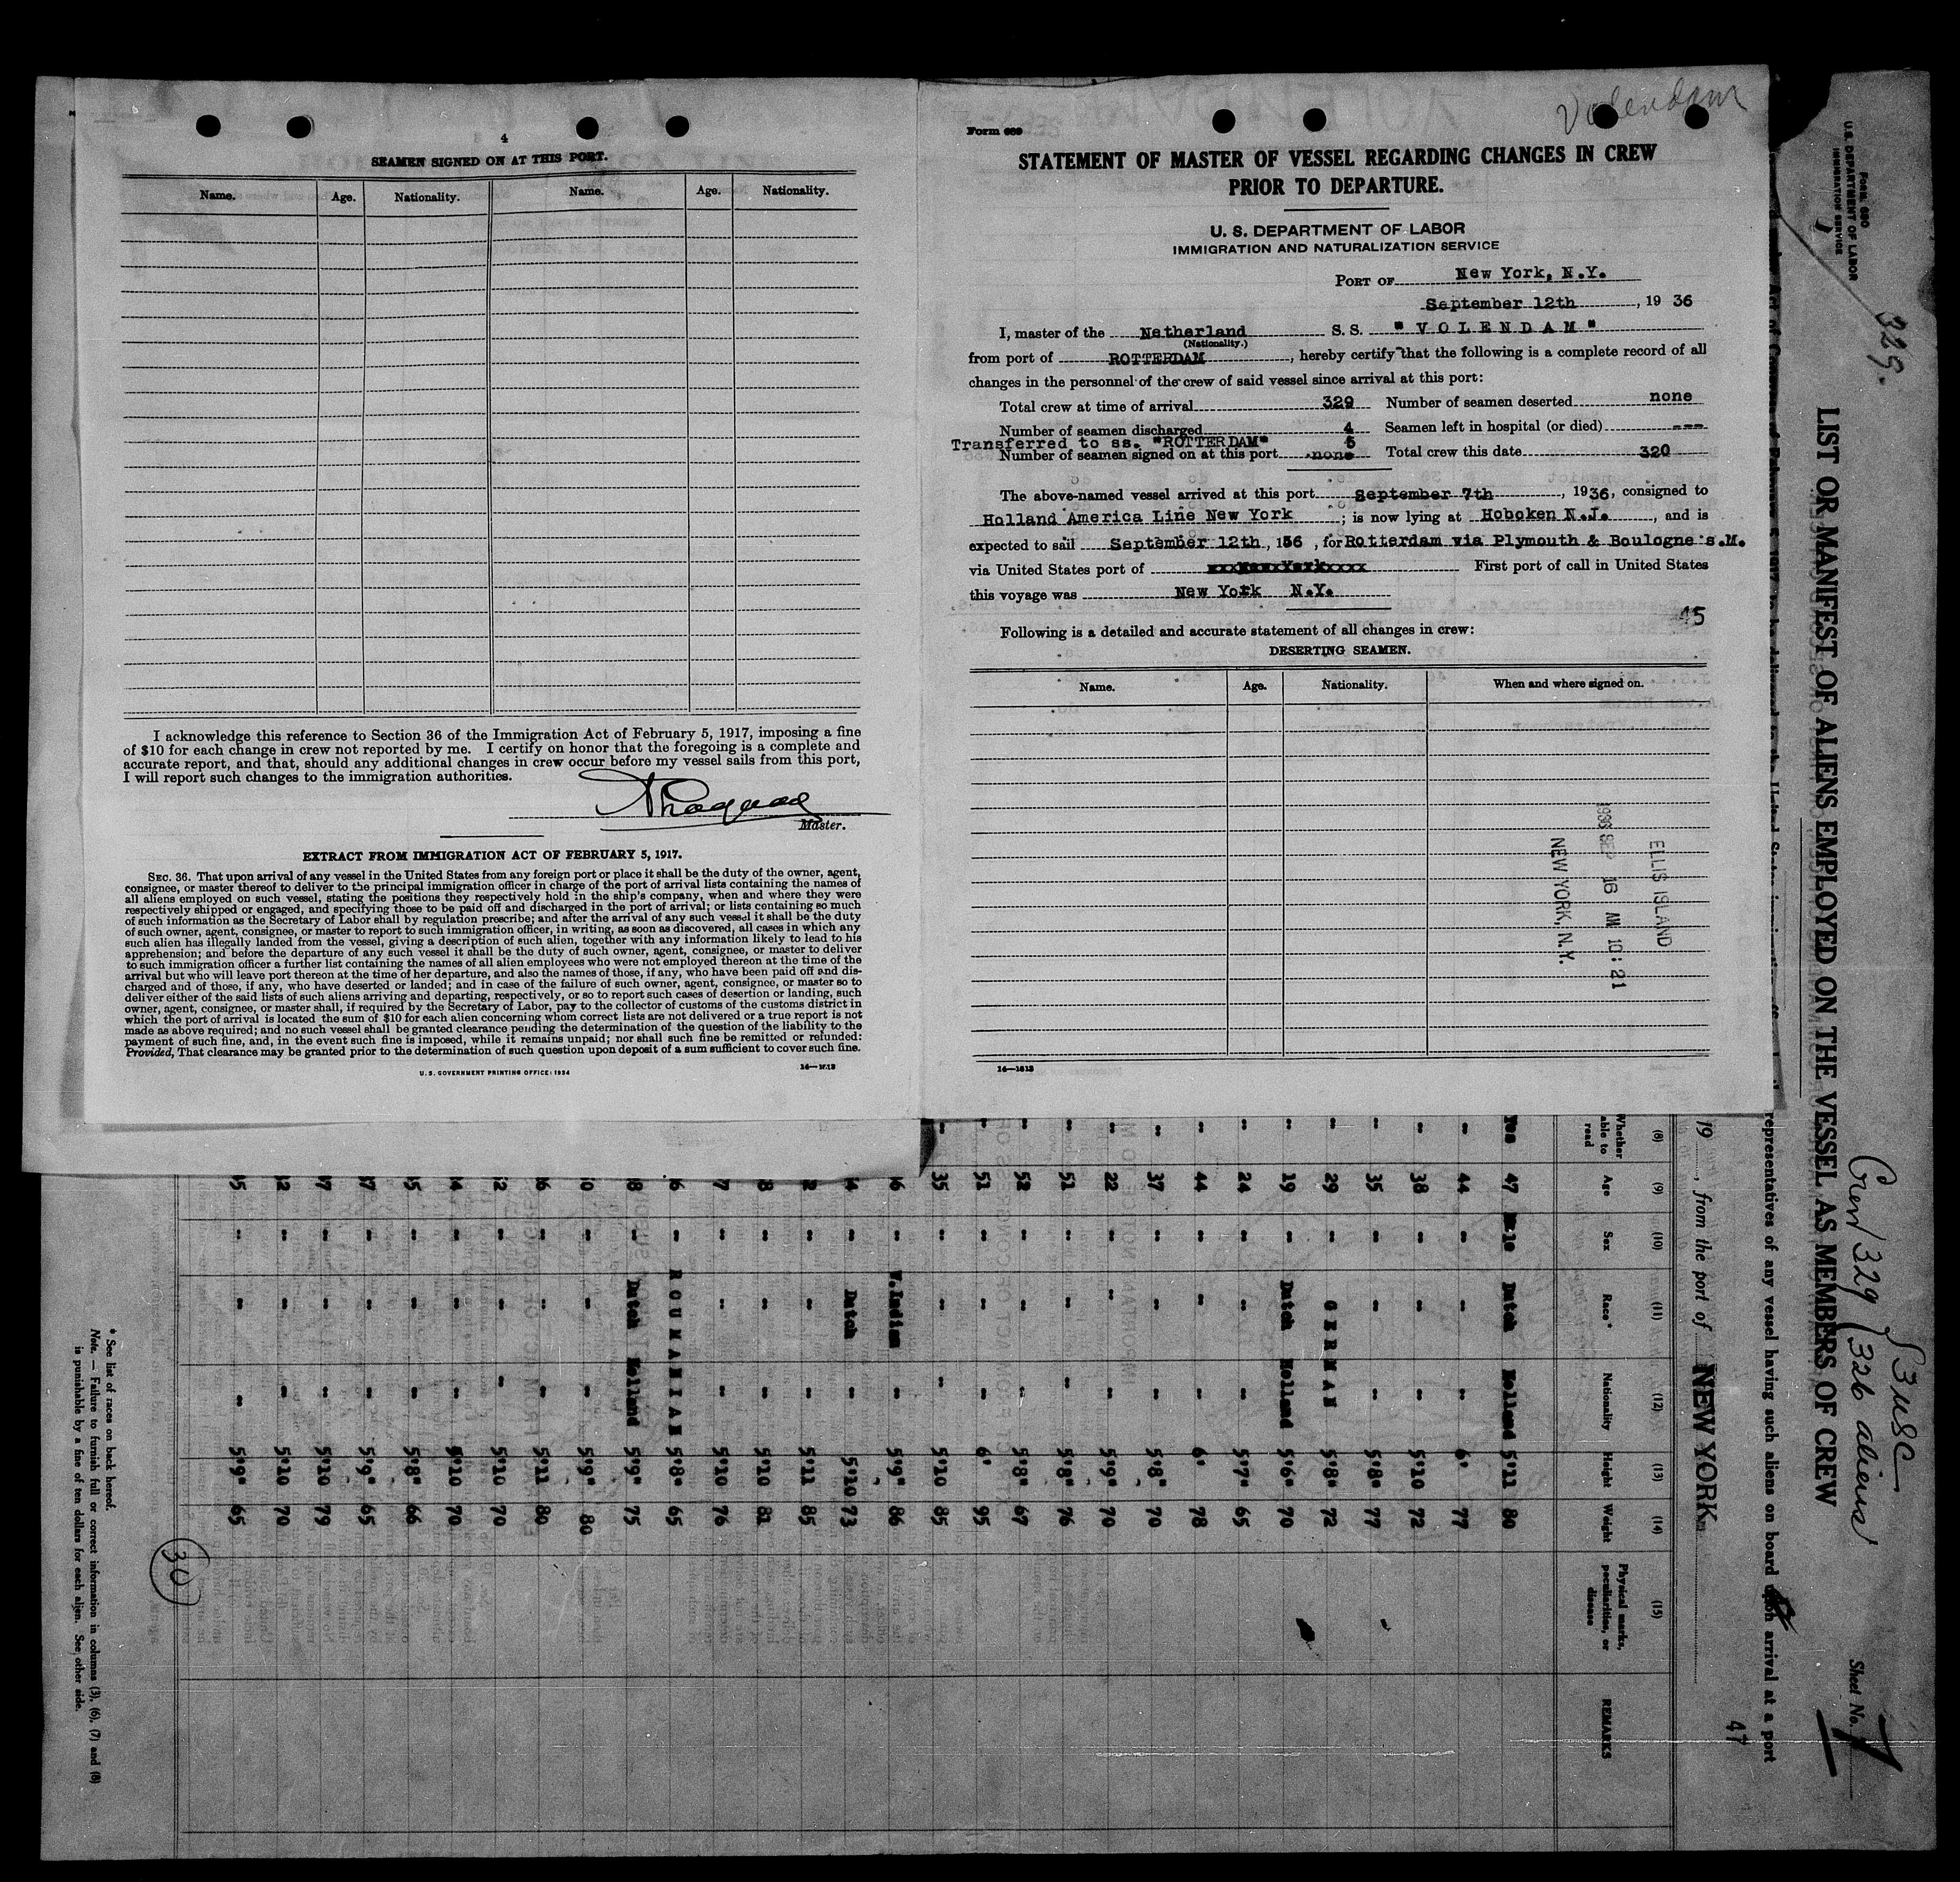 4
SEAMEN SIGNED ON AT THIS PORT.
Name. Age. Nationality. Name. Age. Nationality.
I acknowledge this reference to Section 36 of the Immigration Act of February 5, 1917, imposing a fine
of $10 for each change in crew not reported by me. I certify on honor that the foregoing is a complete and
accurate report, and that, should any additional changes in crew occur before my vessel sails from this port,
I will report such changes to the immigration authorities.
Master.
EXTRACT FROM IMMIGRATION ACT OF FEBRUARY 5, 1917.
SEC. 36. That upon arrival of any vessel in the United States from any foreign port or place it shall be the duty of the owner, agent,
consignee, or master thereof to deliver to the principal immigration officer in charge of the port of arrival lists containing the names of
all aliens employed on such vessel, stating the positions they respectively hold in the ship's company, when and where they were
respectively shipped or engaged, and specifying those to be paid off and discharged in the port of arrival; or lists containing so much
of such information as the Secretary of Labor shall by regulation prescribe; and after the arrival of any such vessel it shall be the duty
of such owner, agent, consignee, or master to report to such immigration officer, in writing, as soon as discovered, all cases in which any
such alien has illegally landed from the vessel, giving a description of such alien, together with any information likely to lead to his
apprehension; and before the departure of any such vessel it shall be the duty of such owner, agent, consignee, or master to deliver
to such immigration officer a further list containing the names of all alien employees who were not employed thereon at the time of the
arrival but who will leave port thereon at the time of her departure, and also the names of those, if any, who have been paid off and dis-
charged and of those, if any, who have deserted or landed; and in case of the failure of such owner, agent, consignee, or master so to
deliver either of the said lists of such aliens arriving and departing, respectively, or so to report such cases of desertion or landing, such
owner, agent, consignee, or master shall, if required by the Secretary of Labor, pay to the collector of customs of the customs district in
which the port of arrival is located the sum of $10 for each alien concerning whom correct lists are not delivered or a true report is not
made as above required; and no such vessel shall be granted clearance pending the determination of the question of the liability to the
payment of such fine, and, in the event such fine is imposed, while it remains unpaid; nor shall such fine be remitted or refunded:
Provided, That clearance may be granted prior to the determination of such question upon deposit of a sum sufficient to cover such fine.
U. S. GOVERNMENT PRINTING OFFICE: 1934
Volendam
Form 689
STATEMENT OF MASTER OF VESSEL REGARDING CHANGES IN CREW
PRIOR TO DEPARTURE.
U. S. DEPARTMENT OF LABOR
IMMIGRATION AND NATURALIZATION SERVICE
PORT OF New York, N.Y.
September 12th, 19 36
I, master of the Netherland S. S. "VOLENDAM"
(Nationality.)
from port of ROTTERDAM, hereby certify that the following is a complete record of all
changes in the personnel of the crew of said vessel since arrival at this port:
Total crew at time of arrival 329 Number of seamen deserted none
Number of seamen discharged 4 Seamen left in hospital (or died) ---
Transferred to ss. "ROTTERDAM" 5
Number of seamen signed on at this port none Total crew this date 320
The above-named vessel arrived at this port September 7th, 1936, consigned to
Holland America Line New York; is now lying at Hoboken N.J., and is
expected to sail September 12th, 136, for Rotterdam via Plymouth & Boulogne s.M.
via United States port of xxxNew Yorkxxxx First port of call in United States
this voyage was New York N.Y.
45
Following is a detailed and accurate statement of all changes in crew:
DESERTING SEAMEN.
Name. Age. Nationality. When and where signed on.
ELLIS ISLAND
1936 SEP 16 AM 10:21
NEW YORK, N.Y.
14—1613
Form 680
U.S. DEPARTMENT OF LABOR
IMMIGRATION SERVICE
329.
LIST OR MANIFEST OF ALIENS EMPLOYED ON THE VESSEL AS MEMBERS OF CREW
Crew 329 { 3 USC
326 aliens
Sheet No. 7
representatives of any vessel having such aliens on board upon arrival at a port
19 , from the port of NEW YORK
47
(8) (9) (10) (11) (12) (13) (14) (15)
Whether able to read Age Sex Race* Nationality Height Weight Physical marks, peculiarities, or disease REMARKS
Yes 47 Male Dutch Holland 5'11 80
" 44 " " " 6' 77
" 38 " " " 5'10 72
" 35 " " " 5'8" 77
" 29 " GERMAN 5'8" 72
" 19 " Dutch Holland 5'6" 70
" 24 " " " 5'7" 65
" 44 " " " 6' 78
" 37 " " " 5'8" 70
" 22 " " " 5'9" 70
" 51 " " " 5'8" 76
" 52 " " " 5'8" 67
" 51 " " " 6' 95
" 35 " " " 5'10 85
6 " W.Indian " 5'9" 86
4 " Dutch " 5'10 73
2 " " " 5'11 85
8 " " " 5'10 81
7 " " " 5'10 76
6 " ROUMANIAN 5'8" 65
8 " Dutch Holland 5'9" 75
0 " " " 5'9" 80
6 " " " 5'11 80
2 " " " 5'10 70
4 " " " 5'10 70
5 " " " 5'8" 66
7 " " " 5'9" 65
7 " " " 5'10 79
2 " " " 5'10 70
5 " " " 5'9" 65
30
* See list of races on back hereof.
Note. — Failure to furnish full or correct information in columns (3), (6), (7) and (8)
is punishable by a fine of ten dollars for each alien. See other side.